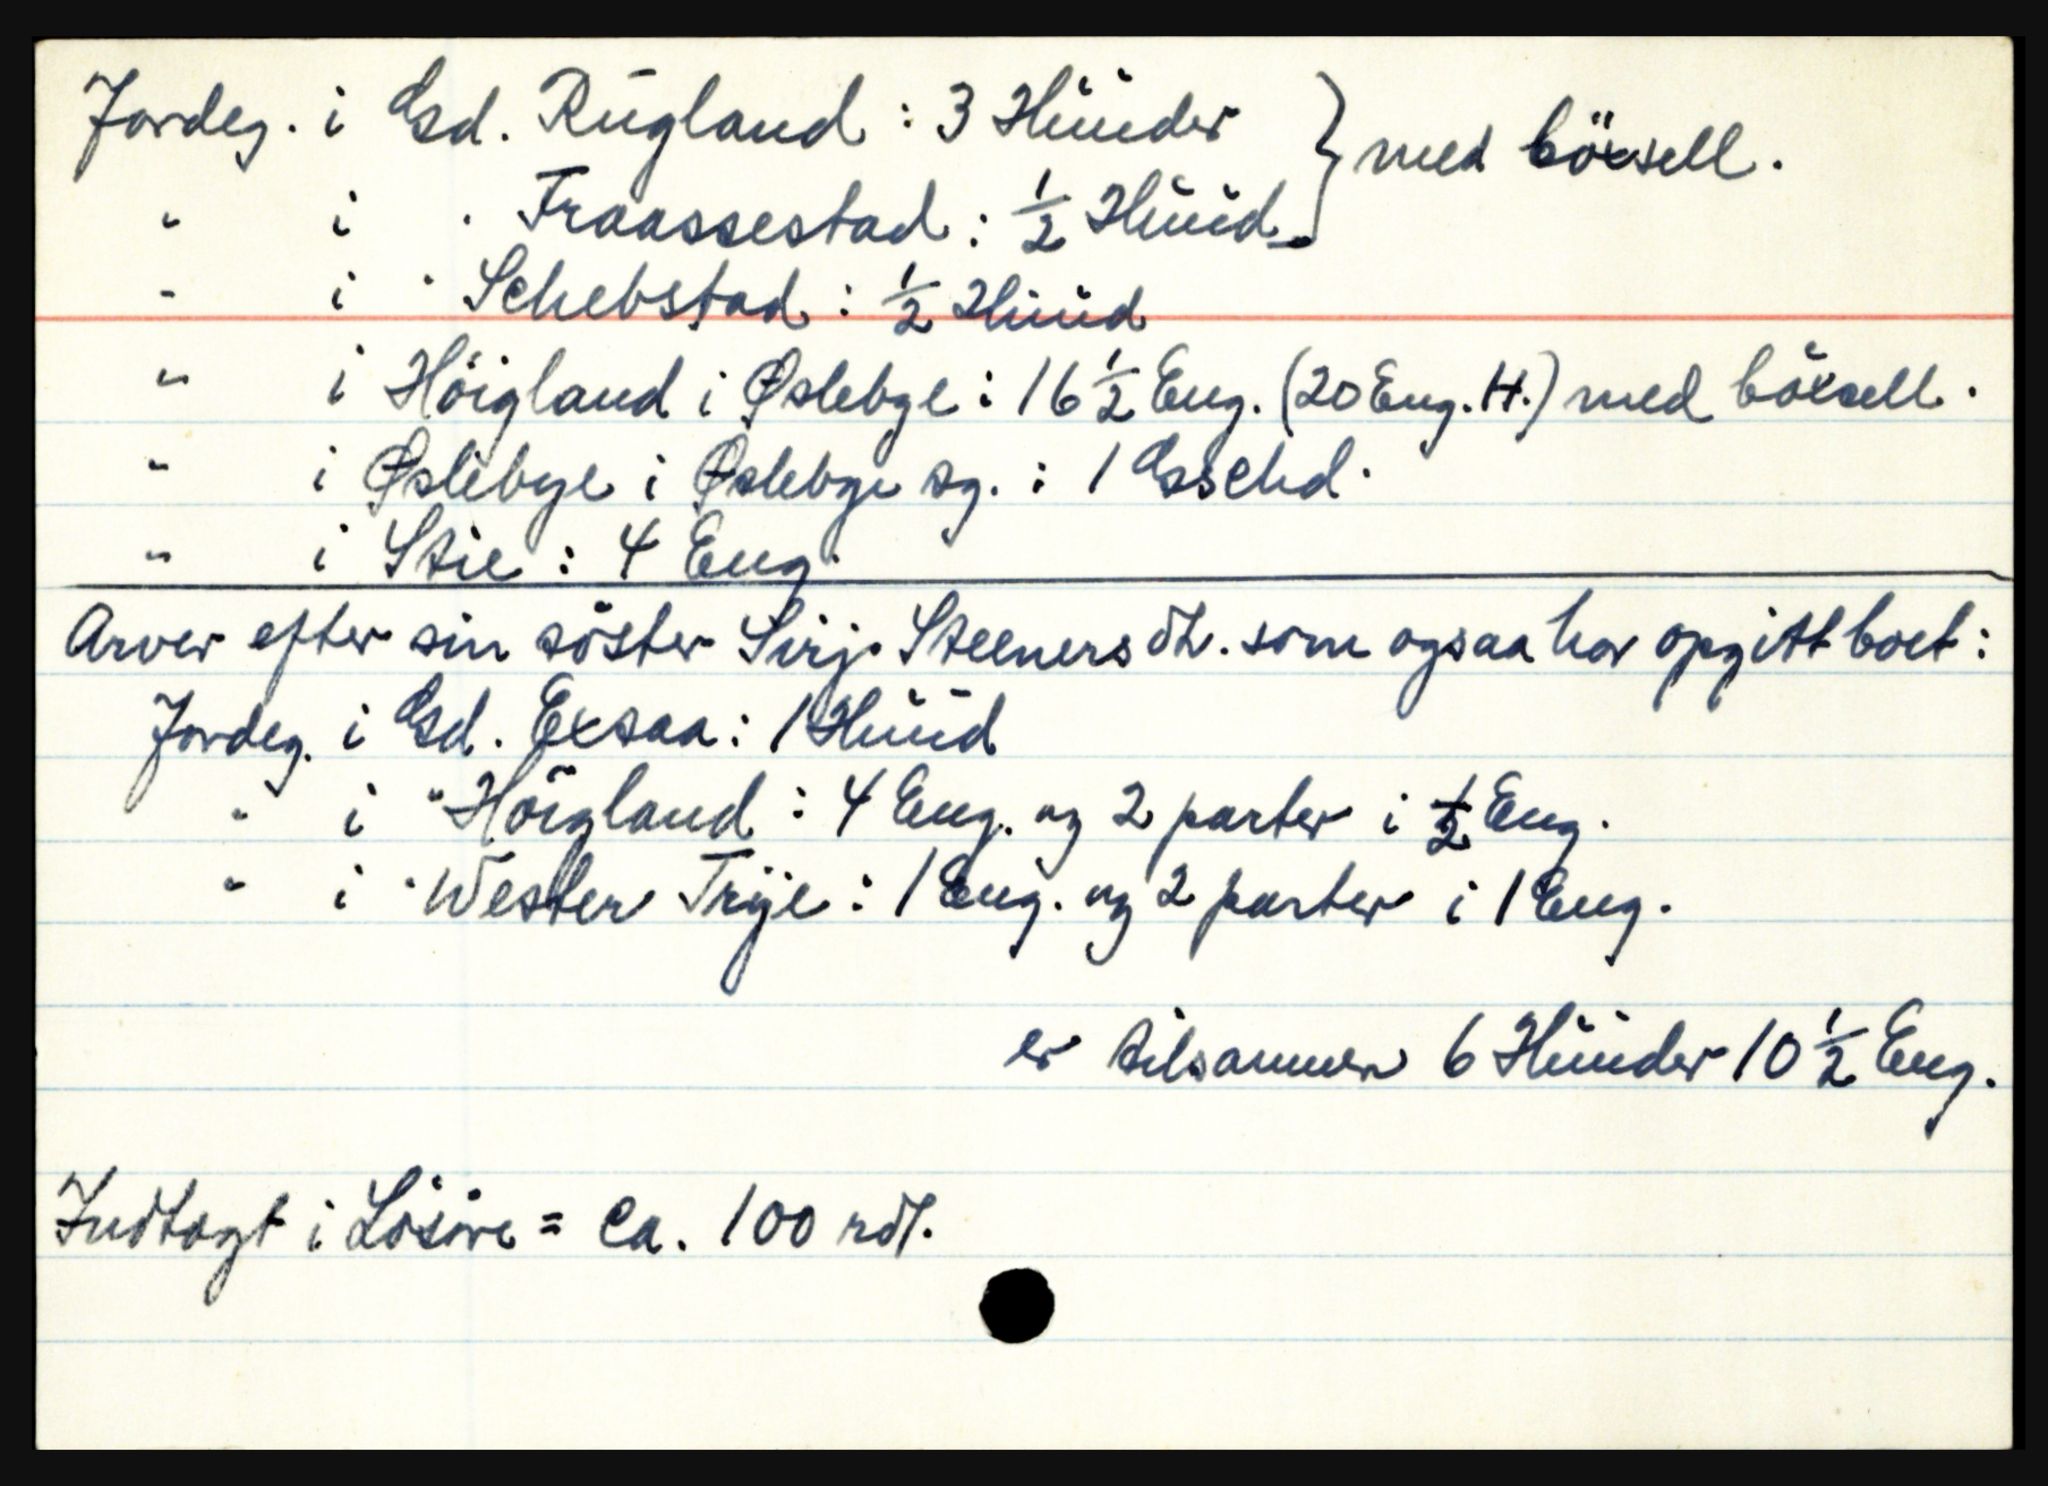 Jordeg. i Gsd. Rŭgland : 3 Hŭuder } med böxsell.
" i " Fraassestad : ½ Hŭud
" i " Schebstad : ½ Hŭud
" i Höigland i Øslebye : 16 ½ Eng. (20 Eng. H.) med böxsell.
" i Øslebye i Øslebye sg. :
" i Stie : 4 Eng.
Arver efter sin söster Sirj. Steenersdt. som ogsaa har opgitt boet :
Jordeg. i Gsd. Exsaa : 1 Hŭud
" i " Höigland : 4 Eng. og 2 parter i ½ Eng.
" i " Wester Trye : 1 Eng. og 2 parter i 1 Eng.
er tilsammen 6 Hŭuder 10 ½ Eng.
Indtogt i Lösöre = ca. 100 rdl.